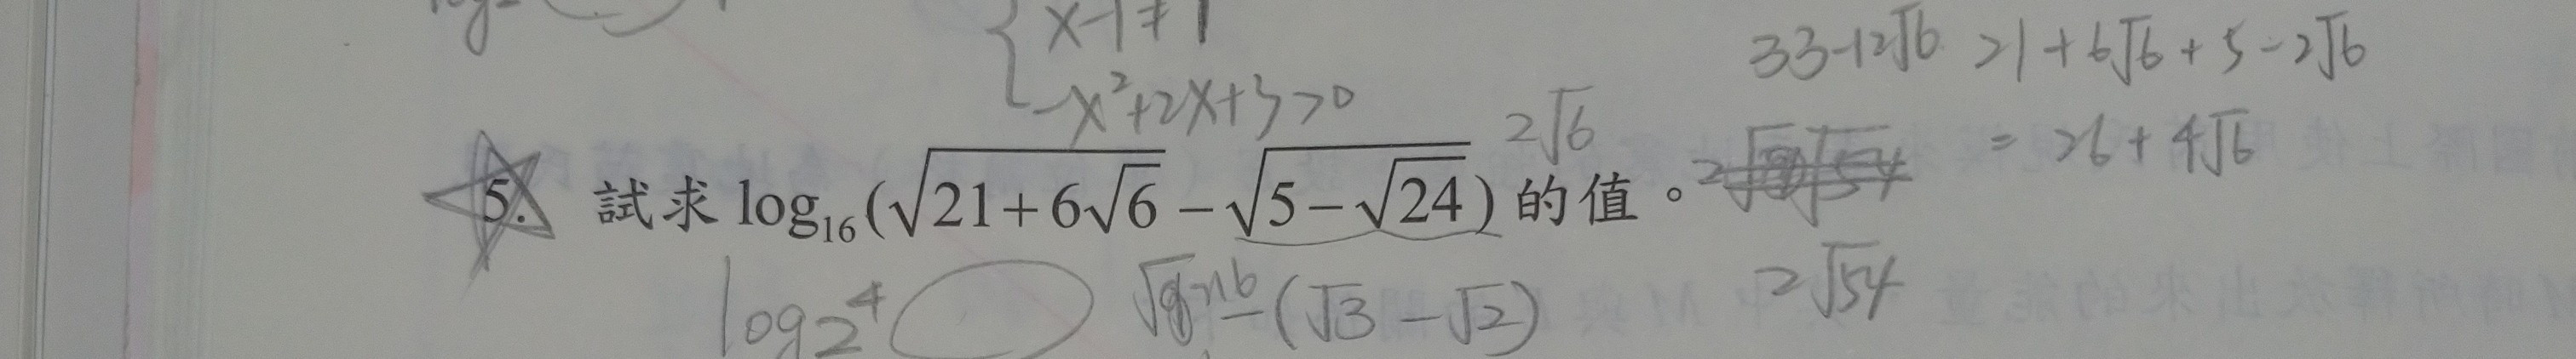 x-1≠1
-x²+2x+3>0
33-12√6 21+6√6+5-2√6
= 26+4√6
2√6
5. 試求 log₁₆(√(21+6√6) - √(5-√24)) 的值。
2√54
log2⁴
-(√3-√2)